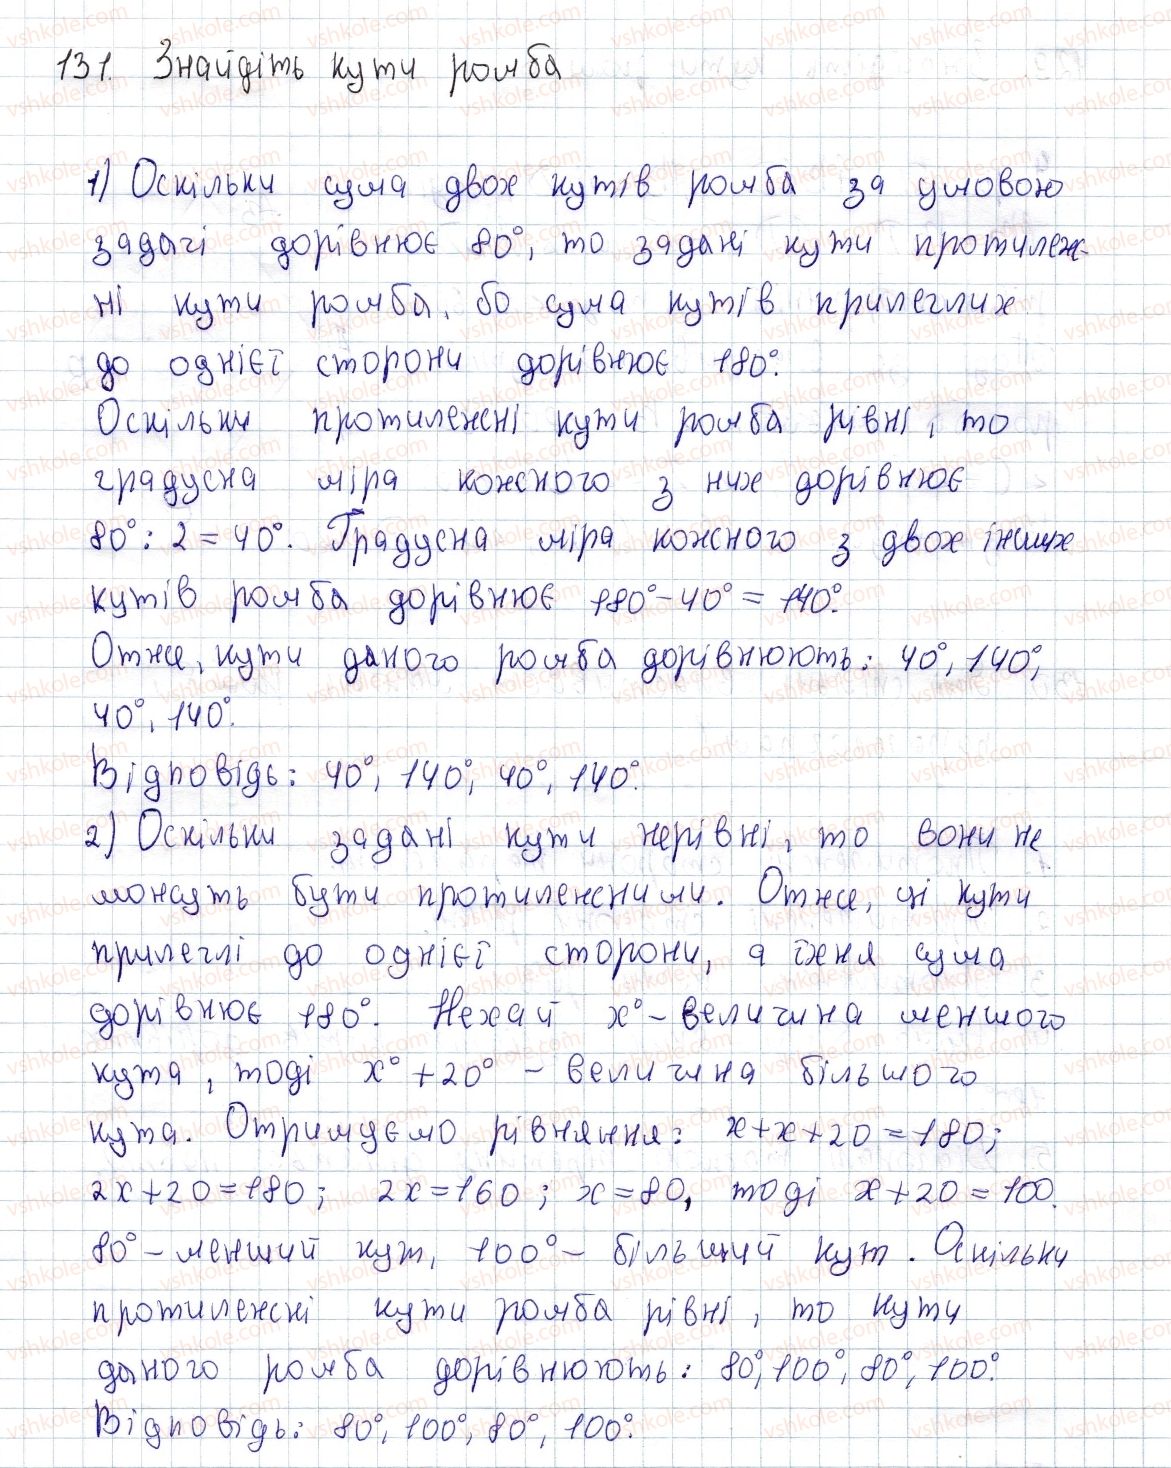 131. Знайдіть кути ромба
1) Оскільки сума двох кутів ромба за умовою
задачі дорівнює 80°, то задані кути протилеж-
ні кути ромба, бо сума кутів прилеглих
до однієї сторони дорівнює 180°.
Оскільки протилежні кути ромба рівні, то
градусна міра кожного з них дорівнює
80° : 2 = 40°. Градусна міра кожного з двох інших
кутів ромба дорівнює 180° - 40° = 140°.
Отже, кути даного ромба дорівнюють: 40°, 140°,
40°, 140°.
Відповідь: 40°, 140°, 40°, 140°.
2) Оскільки задані кути нерівні, то вони не
можуть бути протилежними. Отже, ці кути
прилеглі до однієї сторони, а їхня сума
дорівнює 180°. Нехай x° - величина меншого
кута, тоді x° + 20° - величина більшого
кута. Отримуємо рівняння: x + x + 20 = 180;
2x + 20 = 180; 2x = 160; x = 80, тоді x + 20 = 100.
80° - менший кут, 100° - більший кут. Оскільки
протилежні кути ромба рівні, то кути
даного ромба дорівнюють: 80°, 100°, 80°, 100°.
Відповідь: 80°, 100°, 80°, 100°.